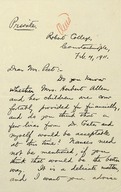 Private
Robert College,
Constantinople,
Feb. 19, 1911.
Dear Mr. Peet:-
Do you know
whether Mrs. Herbert Allen
and her children are com-
fortably provided for financially,
and do you think that a
few liras from Dr. Gates and
myself would be acceptable
at this time? Names need
not be mentioned if you
think that would be the better
way. It is a delicate matter,
and I want you above